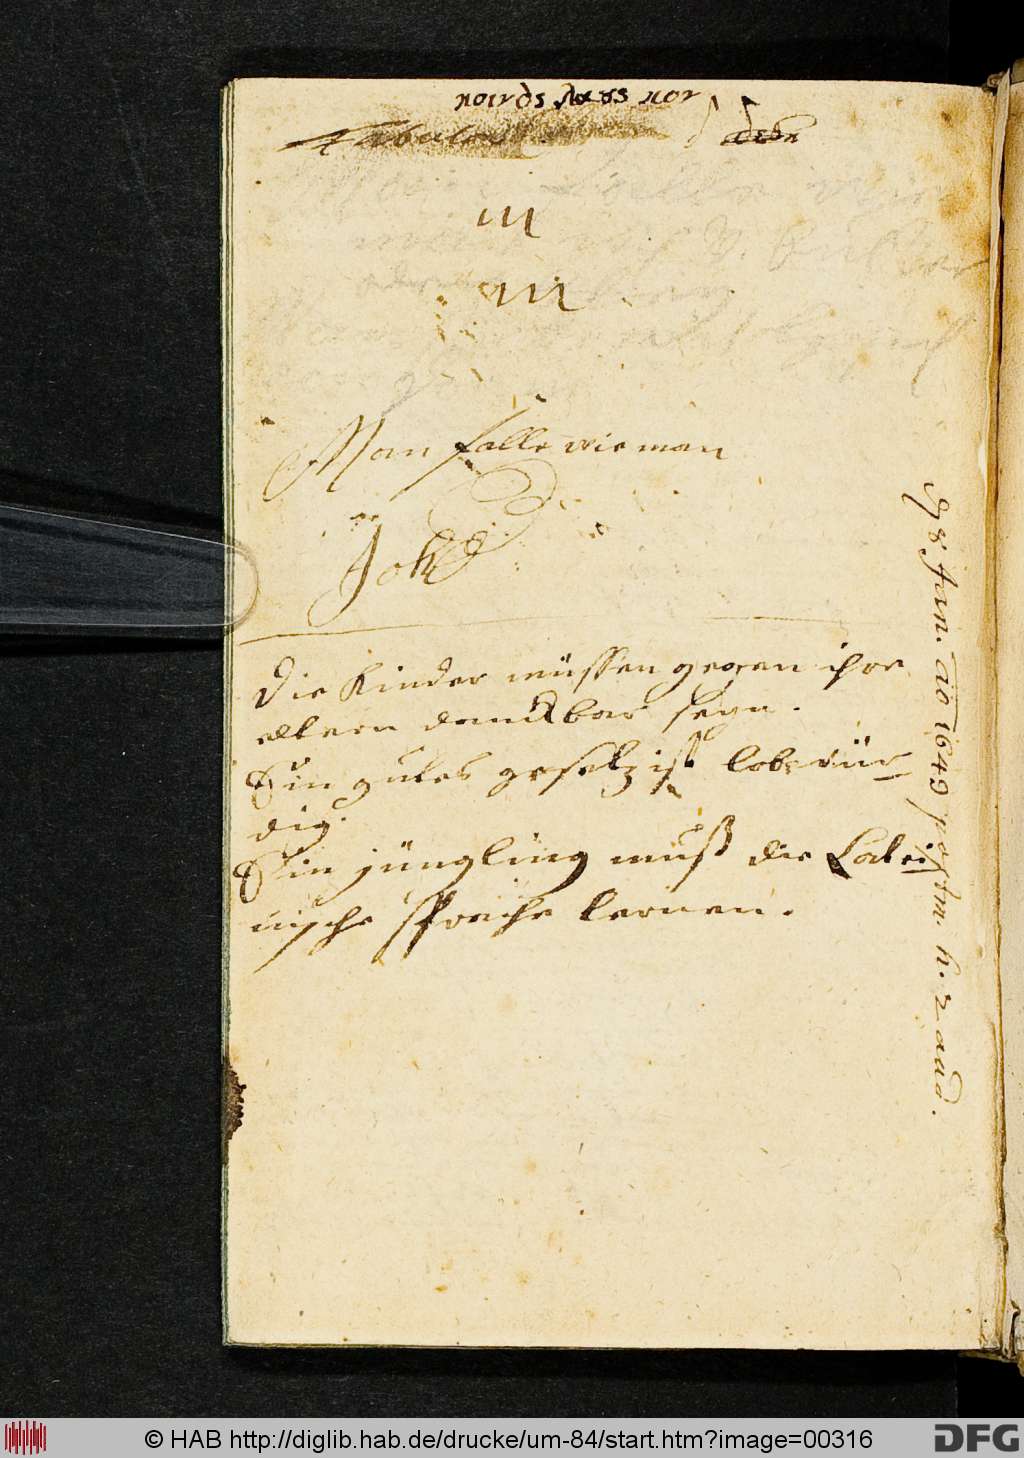 m
m
Man falle wie man
Joh
Die Kinder müssen gegen ihre
ältern danckbar seyn.
Ein gutes gesetz ist lobwür-
dig.
Ein jüngling muß die Latei-
nische sprache lernen.
Jan. Ao 1649
© HAB http://diglib.hab.de/drucke/um-84/start.htm?image=00316
DFG